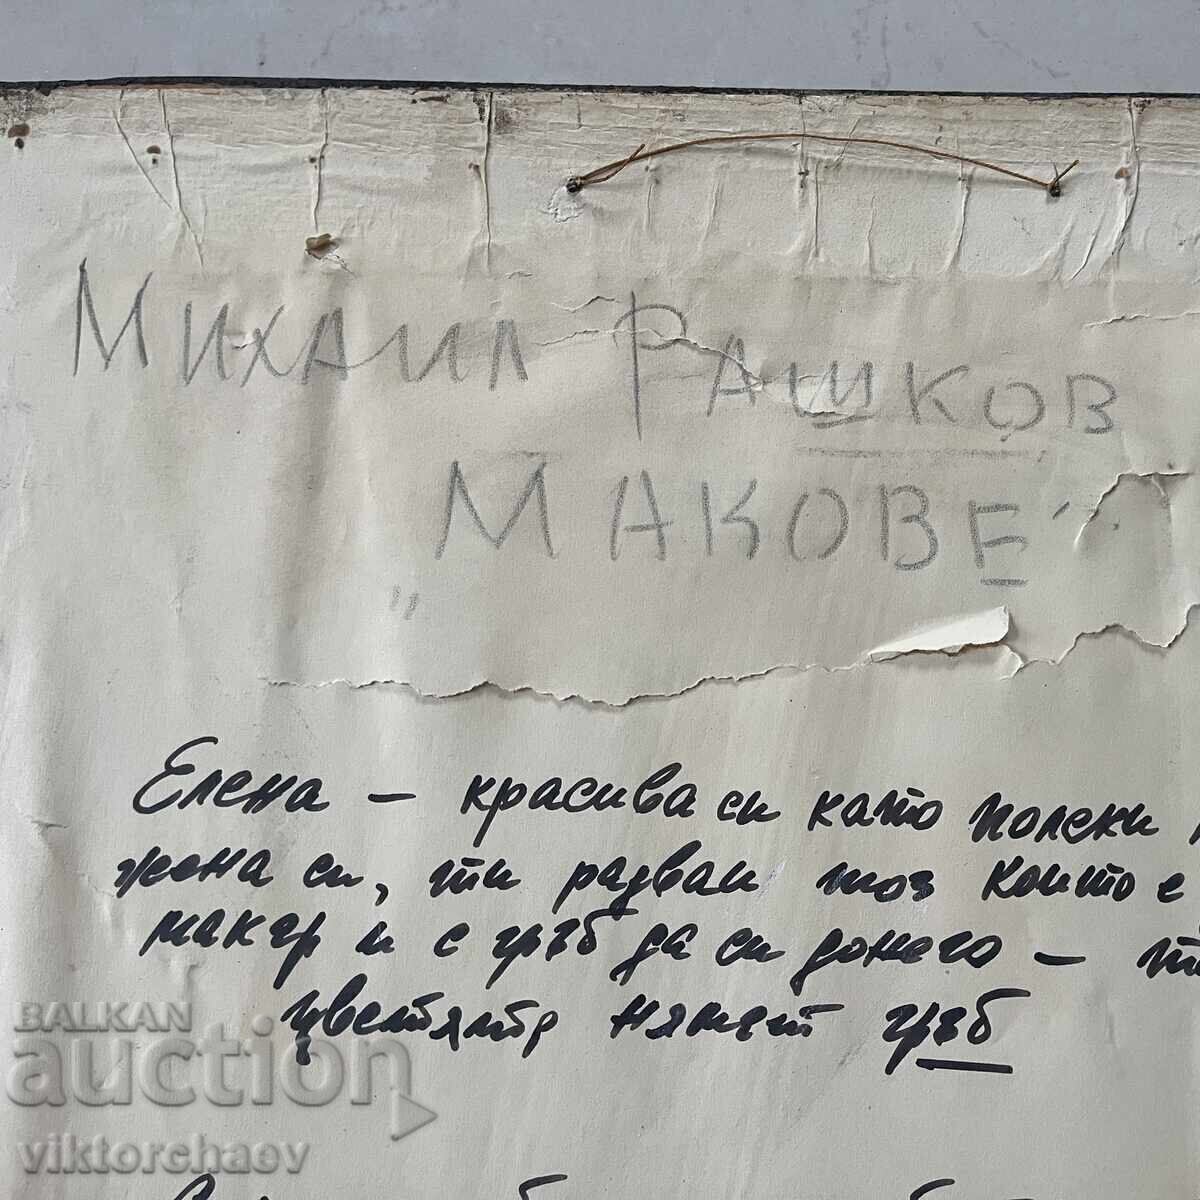 Михаил Рашков
„Макове"
Елена – красива си като полски
жена си, ти радваш тоз който е
макар и с гръб да си до него –
цветята нямат гръб
BALKAN
auction
viktorchaev